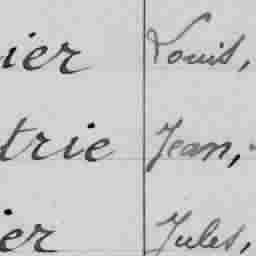 ier Louis,
trie Jean,
ier Jules,